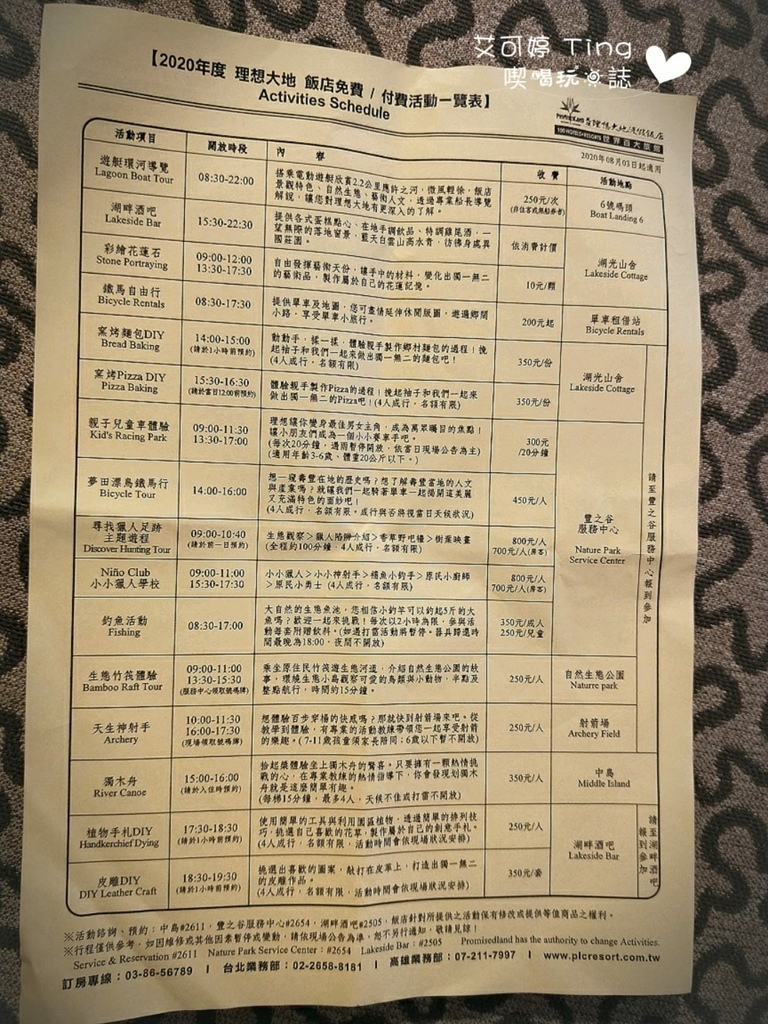 艾可婷 Ting
喫喝玩樂誌
【2020年度 理想大地 飯店免費 / 付費活動一覽表】
Activities Schedule
理想大地渡假飯店
100 HOTELS+RESORTS 世界百大旅館
2020年08月03日起適用
活動項目 開放時段 內 容 收 費 活動地點
遊艇環河導覽
Lagoon Boat Tour
08:30-22:00
搭乘電動遊艇欣賞2.2公里應許之河，微風輕徐，飯店
景觀特色、自然生態、藝術人文，透過專業船長導覽
解說，讓您對理想大地有更深入的了解。
250元/次
6號碼頭
Boat Landing 6
湖畔酒吧
Lakeside Bar
15:30-22:30
提供各式蛋糕點心、在地手調飲品、特調雞尾酒，一
望無際的落地窗景，藍天白雲山高水青，彷彿身處異
國莊園。
依消費計價
湖光山舍
Lakeside Cottage
彩繪花蓮石
Stone Portraying
09:00-12:00
13:30-17:30
自由發揮藝術天份，讓手中的材料，變化出獨一無二
的藝術品，製作屬於自己的花蓮記憶。
10元/顆
鐵馬自由行
Bicycle Rentals
08:30-17:30
提供單車及地圖，您可盡情延伸休閒版圖，遊遍鄉間
小路，享受單車小旅行。
200元起
單車租借站
Bicycle Rentals
窯烤麵包DIY
Bread Baking
14:00-15:00
(請於1小時前預約)
動動手，揉一揉，體驗親手製作鄉村麵包的過程！挽
起袖子和我們一起來做出獨一無二的麵包吧！
(4人成行，名額有限)
350元/份
湖光山舍
Lakeside Cottage
窯烤Pizza DIY
Pizza Baking
15:30-16:30
(請於當日12:00前預約)
體驗親手製作Pizza的過程！挽起袖子和我們一起來
做出獨一無二的Pizza吧！(4人成行，名額有限)
350元/份
親子兒童車體驗
Kid's Racing Park
09:00-11:30
13:30-17:00
理想讓你變身最佳男女主角，成為萬眾矚目的焦點！
讓小朋友們成為一個小小賽車手吧。
(每次20分鐘，遇雨暫停開放，依當日現場公告為主)
(適用年齡3-6歲、體重20公斤以下。)
300元
/20分鐘
豐之谷
服務中心
Nature Park
Service Center
請至豐之谷服務中心報到參加
夢田漂鳥鐵馬行
Bicycle Tour
14:00-16:00
想一窺壽豐在地的歷史嗎？想了解壽豐當地的人文
與產業嗎？就讓我們一起騎著單車一起揭開這美麗
又充滿特色的面紗吧！
(4人成行，名額有限，成行與否將視當日天候狀況)
450元/人
尋找獵人足跡
主題遊程
Discover Hunting Tour
09:00-10:40
(請於前一日預約)
生態觀察>獵人陷阱介紹>香草野吧檯>樹葉映畫
(全程約100分鐘，4人成行，名額有限)
800元/人
700元/人(房客)
Niño Club
小小獵人學校
09:00-11:00
15:30-17:30
小小獵人>小小神射手>捕魚小釣手>原民小廚師
>原民小勇士 (4人成行，名額有限)
800元/人
700元/人(房客)
釣魚活動
Fishing
08:30-17:00
大自然的生態魚池，您相信小釣竿可以釣起5斤的大
魚嗎？歡迎一起來挑戰！每次以2小時為限，參與活
動每套附贈飲料。(如遇打雷活動將暫停。器具歸還時
間最晚為18:00，夜間不開放)
350元/成人
250元/兒童
生態竹筏體驗
Bamboo Raft Tour
09:00-11:00
13:30-15:30
(服務中心領取號碼牌)
乘坐原住民竹筏遊生態河道，介紹自然生態公園的故
事，環繞生態小島觀察可愛的鳥類與小動物，半點及
整點航行，時間約15分鐘。
250元/人
自然生態公園
Naturre park
天生神射手
Archery
10:00-11:30
16:00-17:30
(現場領取號碼牌)
想體驗百步穿楊的快感嗎？那就快到射箭場來吧。從
教學到體驗，有專業的活動教練帶領您一起享受射箭
的樂趣。(7-11歲孩童須家長陪同；6歲以下暫不開放)
250元/人
射箭場
Archery Field
獨木舟
River Canoe
15:00-16:00
(請於入住時預約)
拾起槳體驗坐上獨木舟的驚喜。只要擁有一顆熱情挑
戰的心，在專業教練的熱情指導下，你會發現划獨木
舟就是這麼簡單有趣。
(每梯15分鐘，最多4人，天候不佳或打雷不開放)
350元/人
中島
Middle Island
植物手札DIY
Handkerchief Dying
17:30-18:30
(請於1小時前預約)
使用簡單的工具與利用園區植物，透過簡單的排列技
巧，挑選自己喜歡的花草，製作屬於自己的創意手札。
(4人成行，名額有限，活動時間會依現場狀況安排)
250元/人
湖畔酒吧
Lakeside Bar
請至湖畔酒吧報到參加
皮雕DIY
DIY Leather Craft
18:30-19:30
(請於1小時前預約)
挑選出喜歡的圖案，敲打在皮革上，打造出獨一無二
的皮雕作品。
(4人成行，名額有限，活動時間會依現場狀況安排)
350元/套
※活動諮詢、預約：中島#2611，豐之谷服務中心#2654，湖畔酒吧#2505，飯店針對所提供之活動保有修改或提供等值商品之權利。
※行程僅供參考，如因維修或其他因素暫停或變動，請依現場公告為準，恕不另行通知，敬請見諒！
Service & Reservation #2611 Nature Park Service Center：#2654 Lakeside Bar：#2505 Promisedland has the authority to change Activities.
訂房專線：03-86-56789 | 台北業務部：02-2658-8181 | 高雄業務部：07-211-7997 | www.plcresort.com.tw